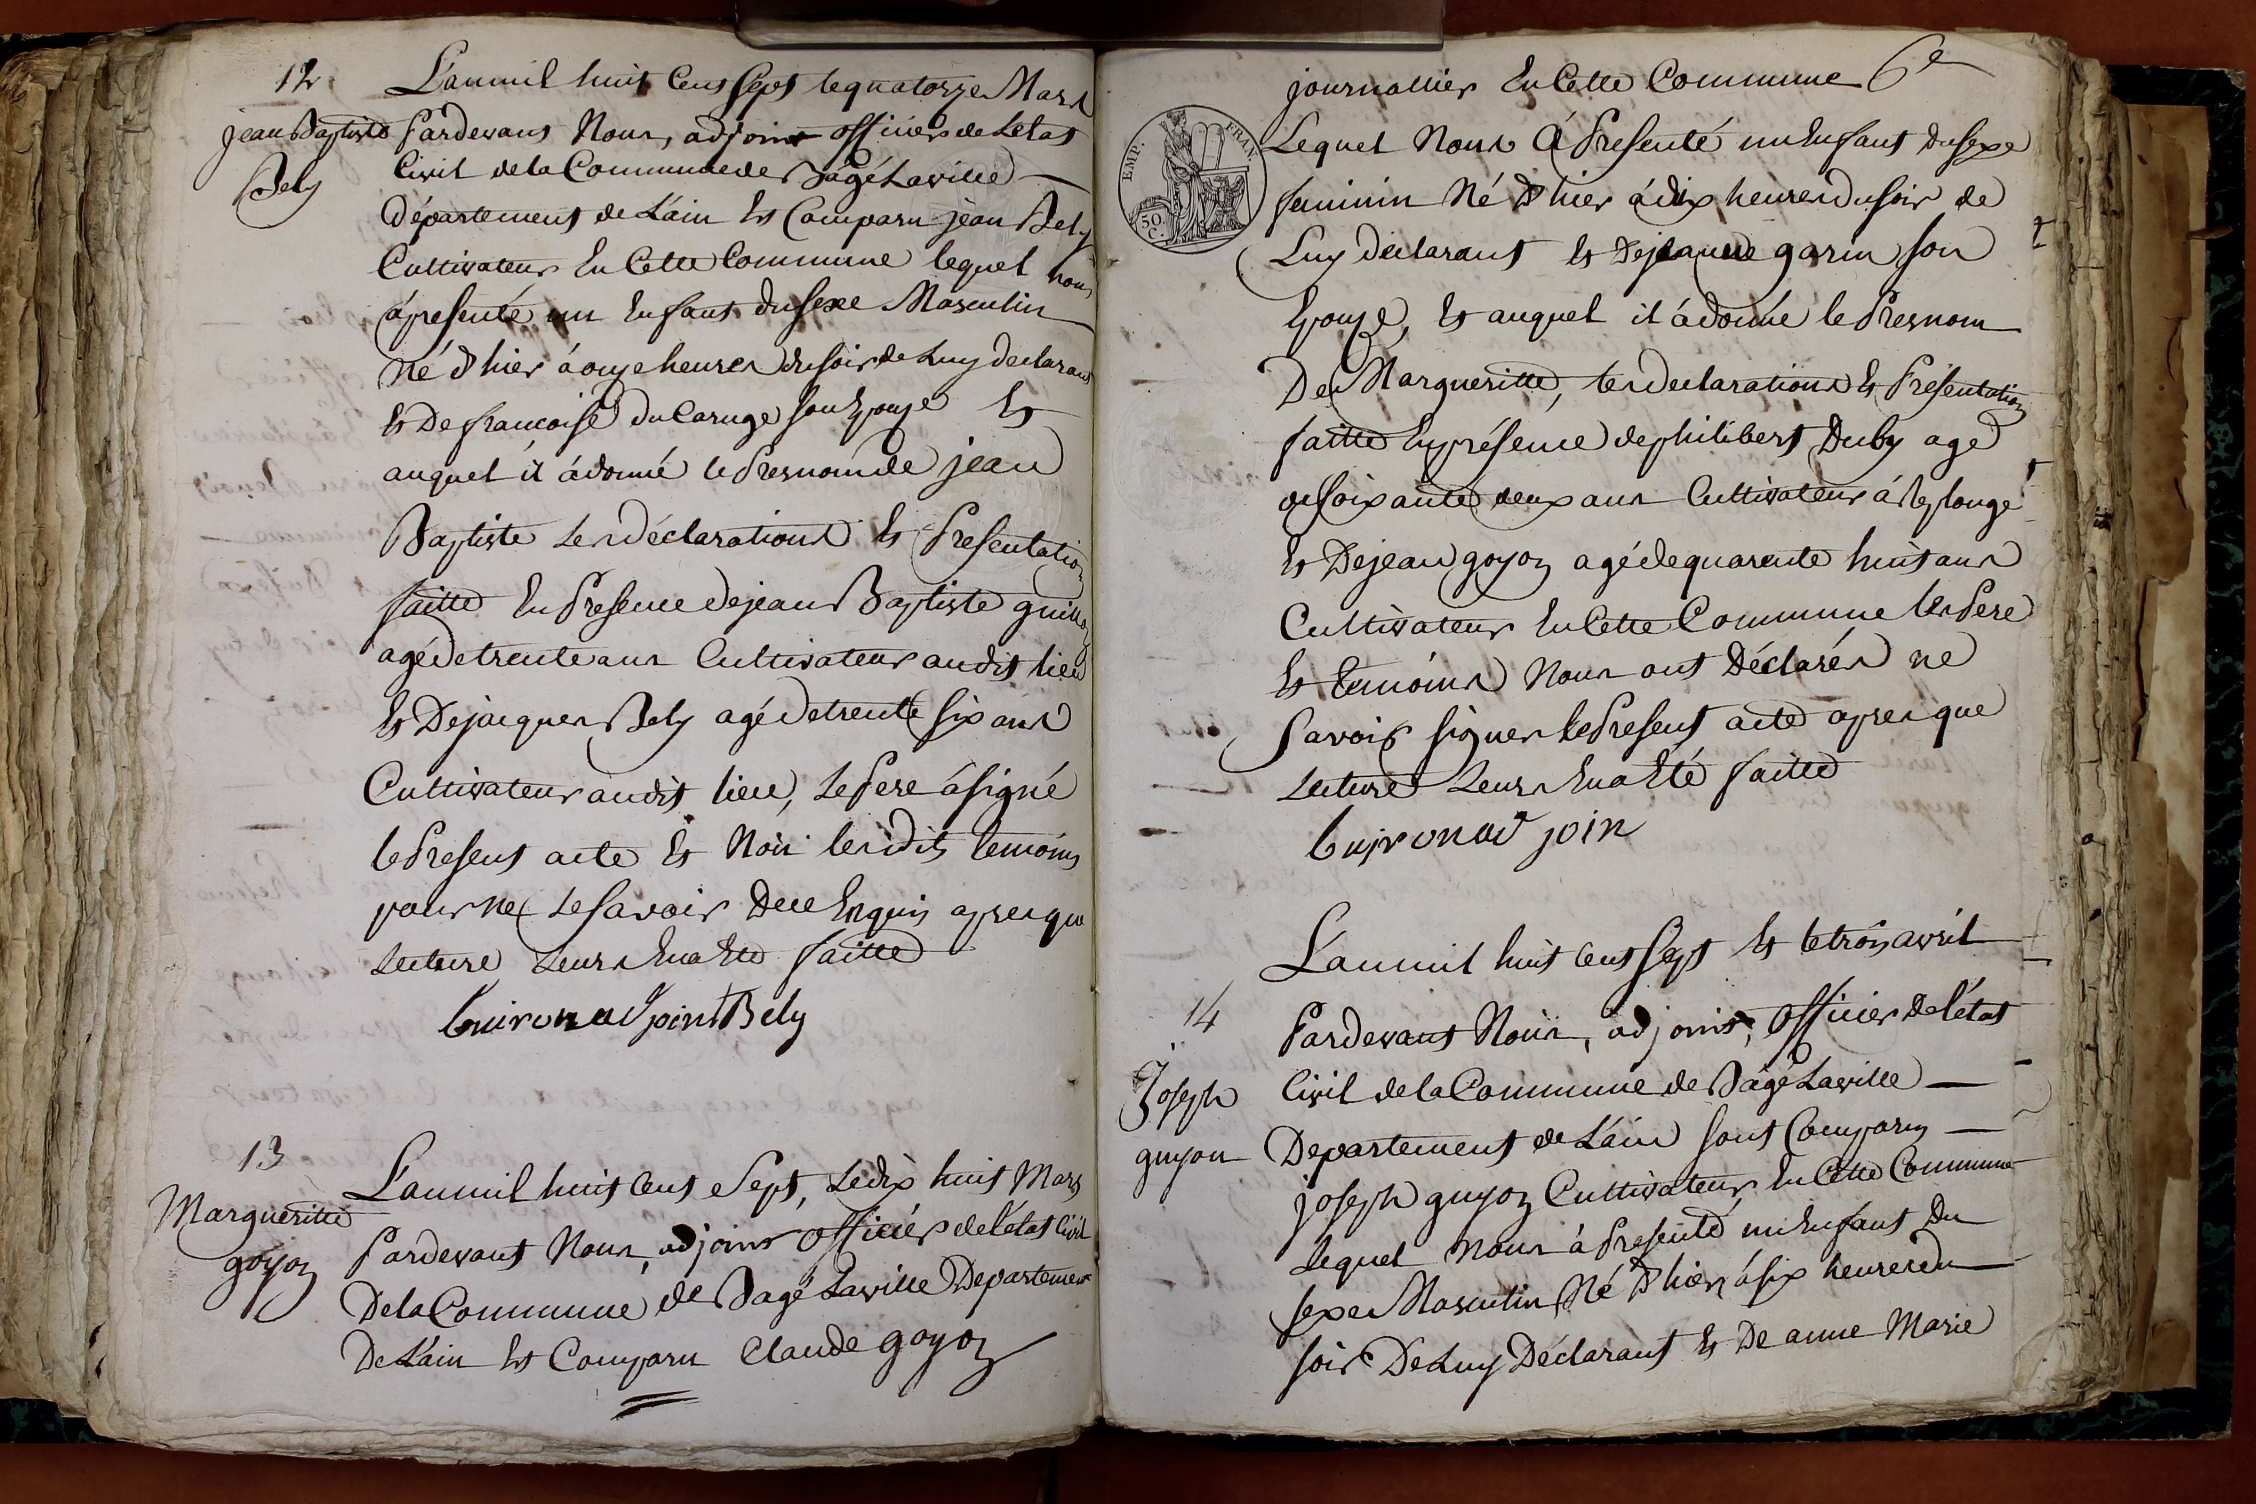 12
jean Baptiste
Bely
L'an mil huit Cent Sept le quatorze Mars
Pardevant Nous, adjoint officier de Letat
Civil de la Commune de Bagé Laville
Département de L'ain Est Comparu jean Bely
Cultivateur En Cette Commune lequel nous
á presenté un Enfant du sexe Masculin
Né d'hier á onze heures du soir de Luy declarant
Et De francoise du Caruge son Epouze Et
auquel il á donné le Presnom de jean
Baptiste Les déclarations Et Presentation
faitte En Presence de jean Baptiste
agé de trente ans Cultivateur au dit lieu
Et De jacques Bely agé de trente six ans
Cultivateur au dit lieu, Le Pere á signé
le Present acte Et Non les dits temoins
pour ne Le Savoir De ce Enquis apres que
Lecture Leurs En a Eté faitte
adjoint Bely
13
Margueritte
goyon
L'an mil huit Cent Sept, Le dix huit Mars
Pardevant Nous, adjoint officier de l'état Civil
De la Commune de Bagé Laville Departement
De L'ain Est Comparu Claude goyon
6e
journallier En Cette Commune
EMP. FRAN.
50 C.
Lequel Nous A Presenté un Enfant du sexe
feminin Né d'hier á dix heures du soir de
Luy déclarant Et De jeanne garin son
Epouze, Et auquel il á donné le Presnom
De Margueritte, les declarations Et Présentation
faitte En présence de philibert Duby agé
de soixante deux ans Cultivateur á Replonge
Et De jean goyon agé de quarente huit ans
Cultivateur En Cette Commune les Pere
Et temoins Nous ont Déclarés ne
Savoir signer le Present acte apres que
Lecture Leurs En a Eté faitte
adjoin
14
Joseph
guyon
L'an mil huit Cent Sept Et le trois avril
Pardevant Nous, adjoint, officier de l'état
Civil de la Commune de Bagé Laville
Departement de L'ain sont Comparu
joseph guyon Cultivateur En Cette Commune
Lequel Nous á Presenté un Enfant Du
sexe Masculin Né d'hier á six heures du
soir De Luy Déclarant Et De anne Marie